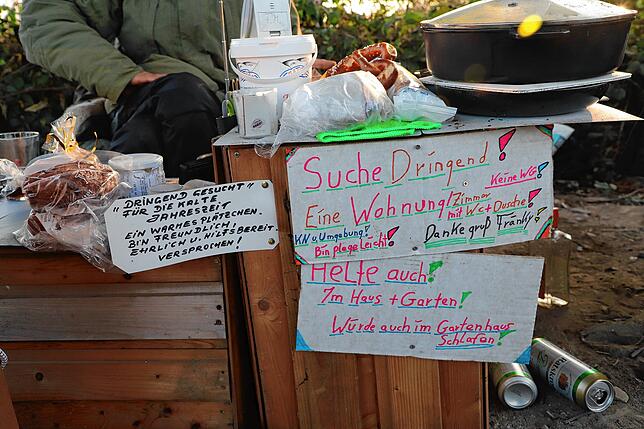 "DRINGEND GESUCHT"
FÜR DIE KALTE
JAHRESZEIT
EIN WARMES PLÄTZCHEN.
BIN FREUNDLICH!
EHRLICH U. HILFSBEREIT.
VERSPROCHEN!
Suche Dringend!
Keine WG!
Eine Wohnung/Zimmer
mit Wc+Dusche!
KN u. Umgebung!
Bin pflegeleicht!
Danke gruß Franky!
Helfe auch!
Im Haus + Garten!
Würde auch im Gartenhaus
Schlafen!